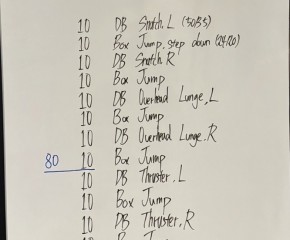 10 DB Snatch, L (50/35)
10 Box Jump, step down (24/20)
10 DB Snatch R
10 Box Jump
10 DB Overhead Lunge, L
10 Box Jump
10 DB Overhead Lunge, R
80 10 Box Jump
10 DB Thruster, L
10 Box Jump
10 DB Thruster, R
10 Box Jump